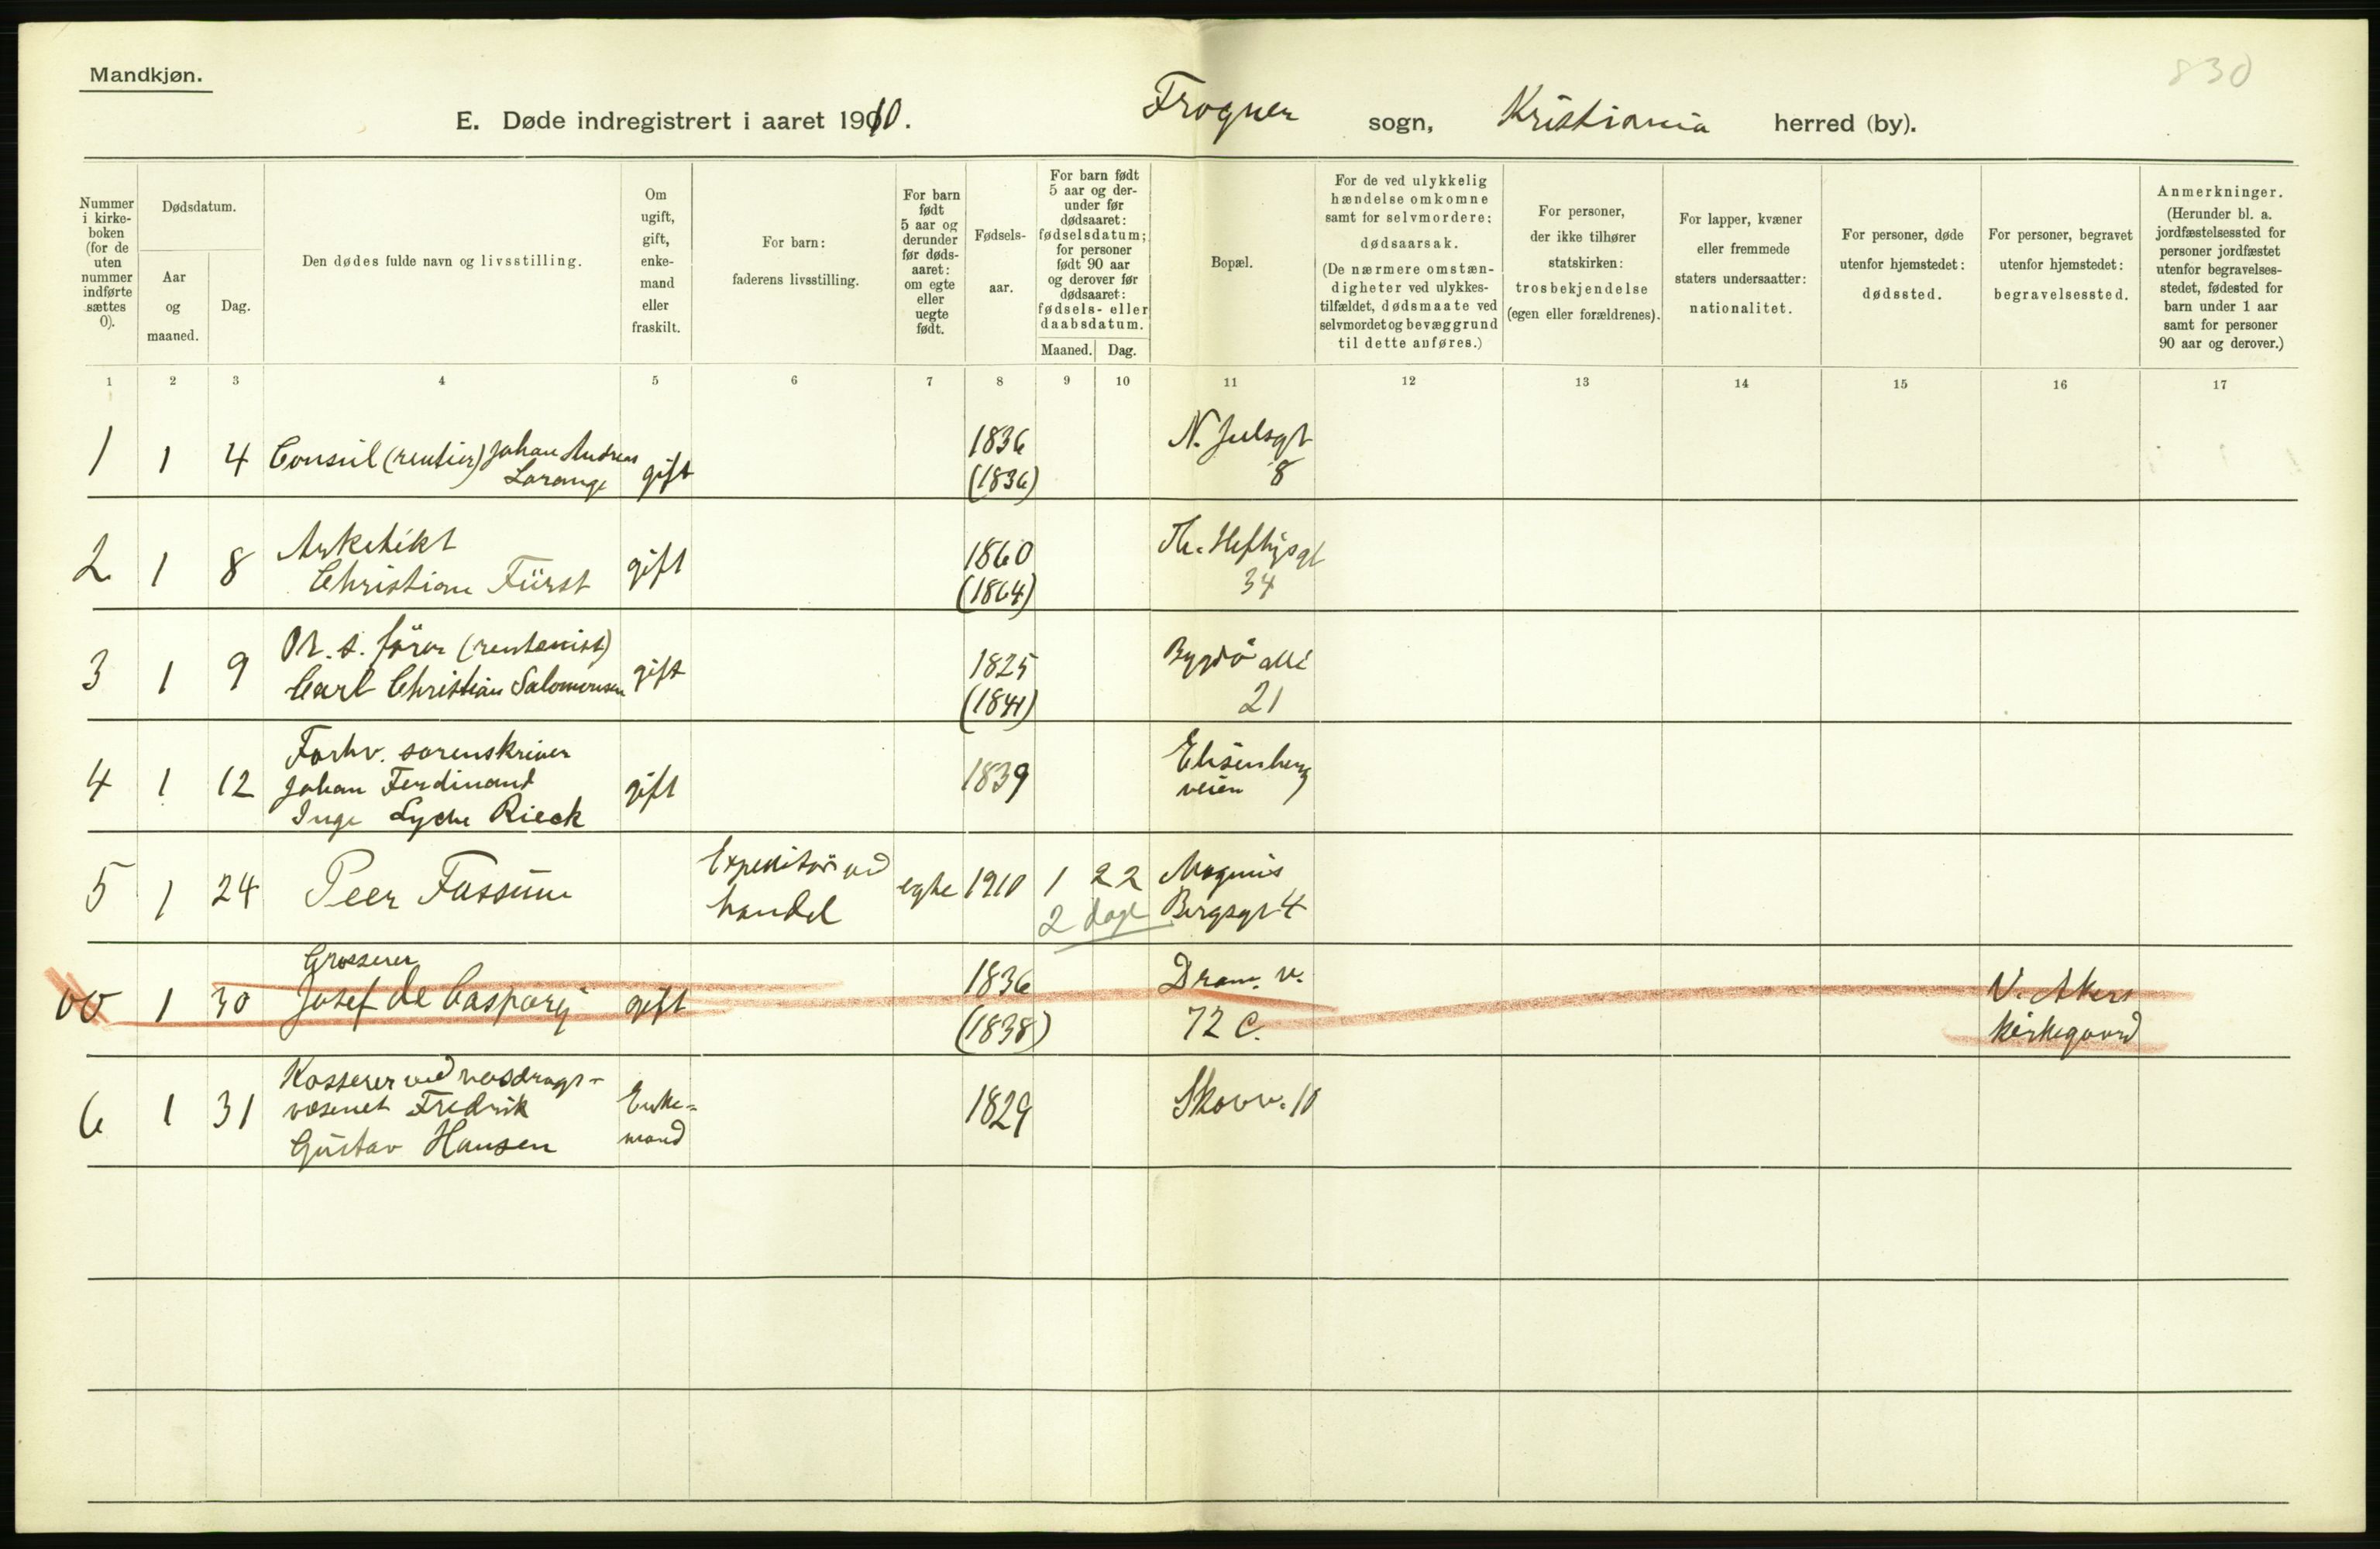 Mandkjøn.
830
E. Døde indregistrert i aaret 1910.
Frogner sogn, Kristiania herred (by).
Nummer i kirke- boken (for de uten nummer indførte sættes 0).
Dødsdatum.
Aar og maaned.
Dag.
Den dødes fulde navn og livsstilling.
Om ugift, gift, enke- mand eller fraskilt.
For barn: faderens livsstilling.
For barn født 5 aar og derunder før døds- aaret: om egte eller uegte født.
Fødsels- aar.
For barn født 5 aar og der- under før dødsaaret: fødselsdatum; for personer født 90 aar og derover før dødsaaret: fødsels- eller daabsdatum.
Maaned. Dag.
Bopæl.
For de ved ulykkelig hændelse omkomne samt for selvmordere: dødsaarsak. (De nærmere omstæn- digheter ved ulykkes- tilfældet, dødsmaate ved selvmordet og bevæggrund til dette anføres.)
For personer, der ikke tilhører statskirken: trosbekjendelse (egen eller forældrenes).
For lapper, kvæner eller fremmede staters undersaatter: nationalitet.
For personer, døde utenfor hjemstedet: dødssted.
For personer, begravet utenfor hjemstedet: begravelsessted.
Anmerkninger. (Herunder bl. a. jordfæstelsessted for personer jordfæstet utenfor begravelses- stedet, fødested for barn under 1 aar samt for personer 90 aar og derover.)
1 2 3 4 5 6 7 8 9 10 11 12 13 14 15 16 17
1 1 4 Consul (rentier) Johan Andreas Lorange gift 1836 (1836) N. Julsgt 8
2 1 8 Arkitekt Christian Fürst gift 1860 (1864) Th. Heftysgt 34
3 1 9 O.r.s. förer (rentenist) Carl Christian Salomonsen gift 1825 (1841) Bygdö allé 21
4 1 12 Forhv. sorenskriver Johan Ferdinand Inge Lyche Rieck gift 1839 Elisenberg veien
5 1 24 Peer Fossum Expeditör ved handel egte 1910 1 22 2 dage Magnus Bergsgt 4
00 1 30 Grosserer Josef de Caspary gift 1836 (1838) Dram. v. 72 C. V. Akers kirkegaard
6 1 31 Kasserer ved vasdrags- væsenet Fredrik Gustav Hansen Enke- mand 1829 Skovv. 10